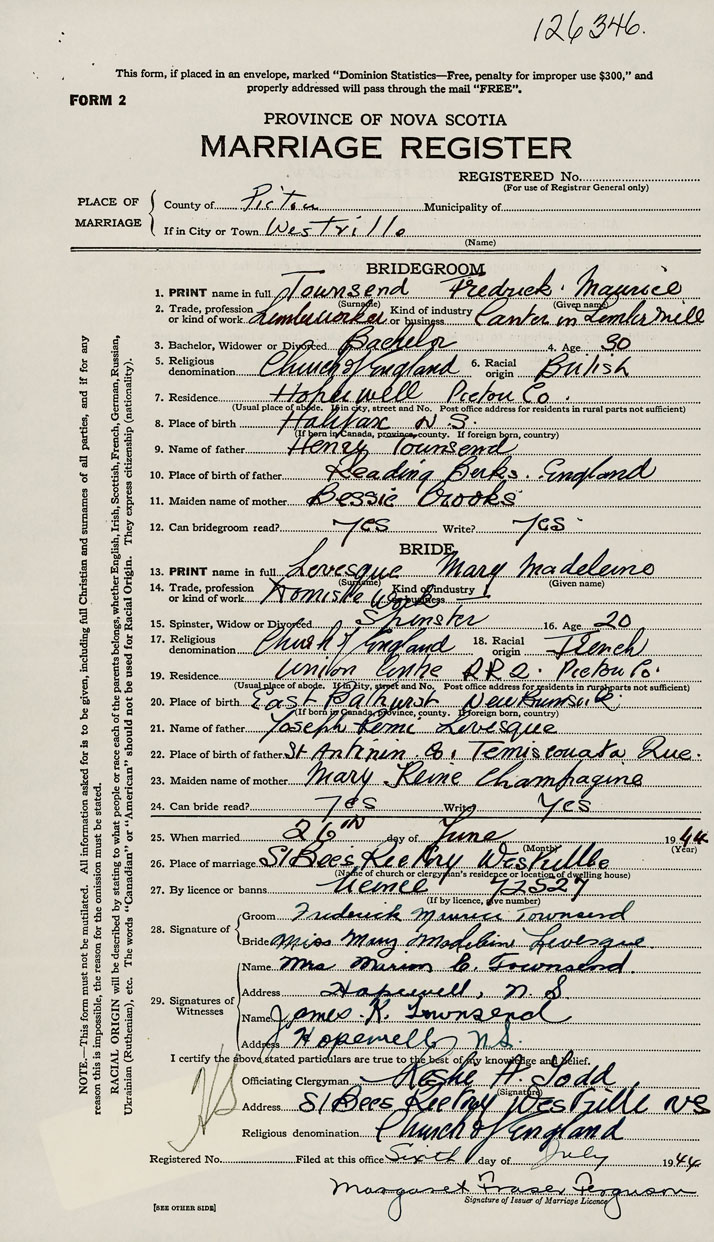 126346.
This form, if placed in an envelope, marked "Dominion Statistics—Free, penalty for improper use $300," and
properly addressed will pass through the mail "FREE".
FORM 2
PROVINCE OF NOVA SCOTIA
MARRIAGE REGISTER
REGISTERED No.
(For use of Registrar General only)
PLACE OF MARRIAGE
County of Pictou Municipality of
If in City or Town Westville
(Name)
BRIDEGROOM
1. PRINT name in full Townsend Fredrick Maurice
(Surname) (Given name)
2. Trade, profession or kind of work Lumberworker Kind of industry or business Canter in Lumber Mill
3. Bachelor, Widower or Divorced Bachelor 4. Age 30
5. Religious denomination Church of England 6. Racial origin British
7. Residence Hopewell Pictou Co.
(Usual place of abode. If in city, street and No. Post office address for residents in rural parts not sufficient)
8. Place of birth Halifax N.S.
(If born in Canada, province, county. If foreign born, country)
9. Name of father Henry Townsend
10. Place of birth of father Reading Berks. England
11. Maiden name of mother Bessie Crooks
12. Can bridegroom read? Yes Write? Yes
BRIDE
13. PRINT name in full Levesque Mary Madeleine
(Surname) (Given name)
14. Trade, profession or kind of work Work Kind of industry or business
15. Spinster, Widow or Divorced Spinster 16. Age 20
17. Religious denomination Church of England 18. Racial origin French
19. Residence Union Centre R.R.2. Pictou Co.
(Usual place of abode. If in city, street and No. Post office address for residents in rural parts not sufficient)
20. Place of birth East Bathurst New Brunswick
(If born in Canada, province, county. If foreign born, country)
21. Name of father Joseph Remi Levesque
22. Place of birth of father St Temiscouata Que.
23. Maiden name of mother Mary Reine Champagine
24. Can bride read? Yes Write? Yes
25. When married 26th day of June 1944
(Month) (Year)
26. Place of marriage St Bees Rectory Westville
(Name of church or clergyman's residence or location of dwelling house)
27. By licence or banns licence 72527
(If by licence, give number)
28. Signature of
Groom Frederick Maurice Townsend
Bride Miss Mary Madeleine Levesque.
29. Signatures of Witnesses
Name Mrs Marion E. Townsend.
Address Hopewell, N.S
Name James. K. Townsend
Address Hopewell N.S.
I certify the above stated particulars are true to the best of my knowledge and belief.
Officiating Clergyman H. Todd
(Signature)
Address St Bees Rectory Westville NS
Religious denomination Church of England
Registered No. Filed at this office Sixth day of July 1944
Margaret Fraser Ferguson
Signature of Issuer of Marriage Licence
[SEE OTHER SIDE]
NOTE.—This form must not be mutilated. All information asked for is to be given, including full Christian and surnames of all parties, and if for any
reason this is impossible, the reason for the omission must be stated.
RACIAL ORIGIN will be described by stating to what people or race each of the parents belongs, whether English, Irish, Scottish, French, German, Russian,
Ukrainian (Ruthenian), etc. The words "Canadian" or "American" should not be used for Racial Origin. They express citizenship (nationality).